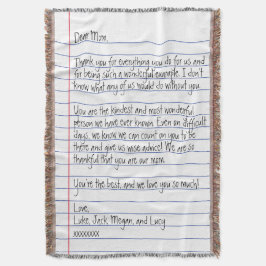 Dear Mom,
Thank you for everything you do for us and
for being such a wonderful example. I don't
know what any of us would do without you.
You are the kindest and most wonderful
person we have ever known. Even on difficult
days, we know we can count on you to be
there and give us wise advice! We are so
thankful that you are our mom.
You're the best, and we love you so much!
Love,
Luke, Jack, Megan, and Lucy
xxxxxxxx